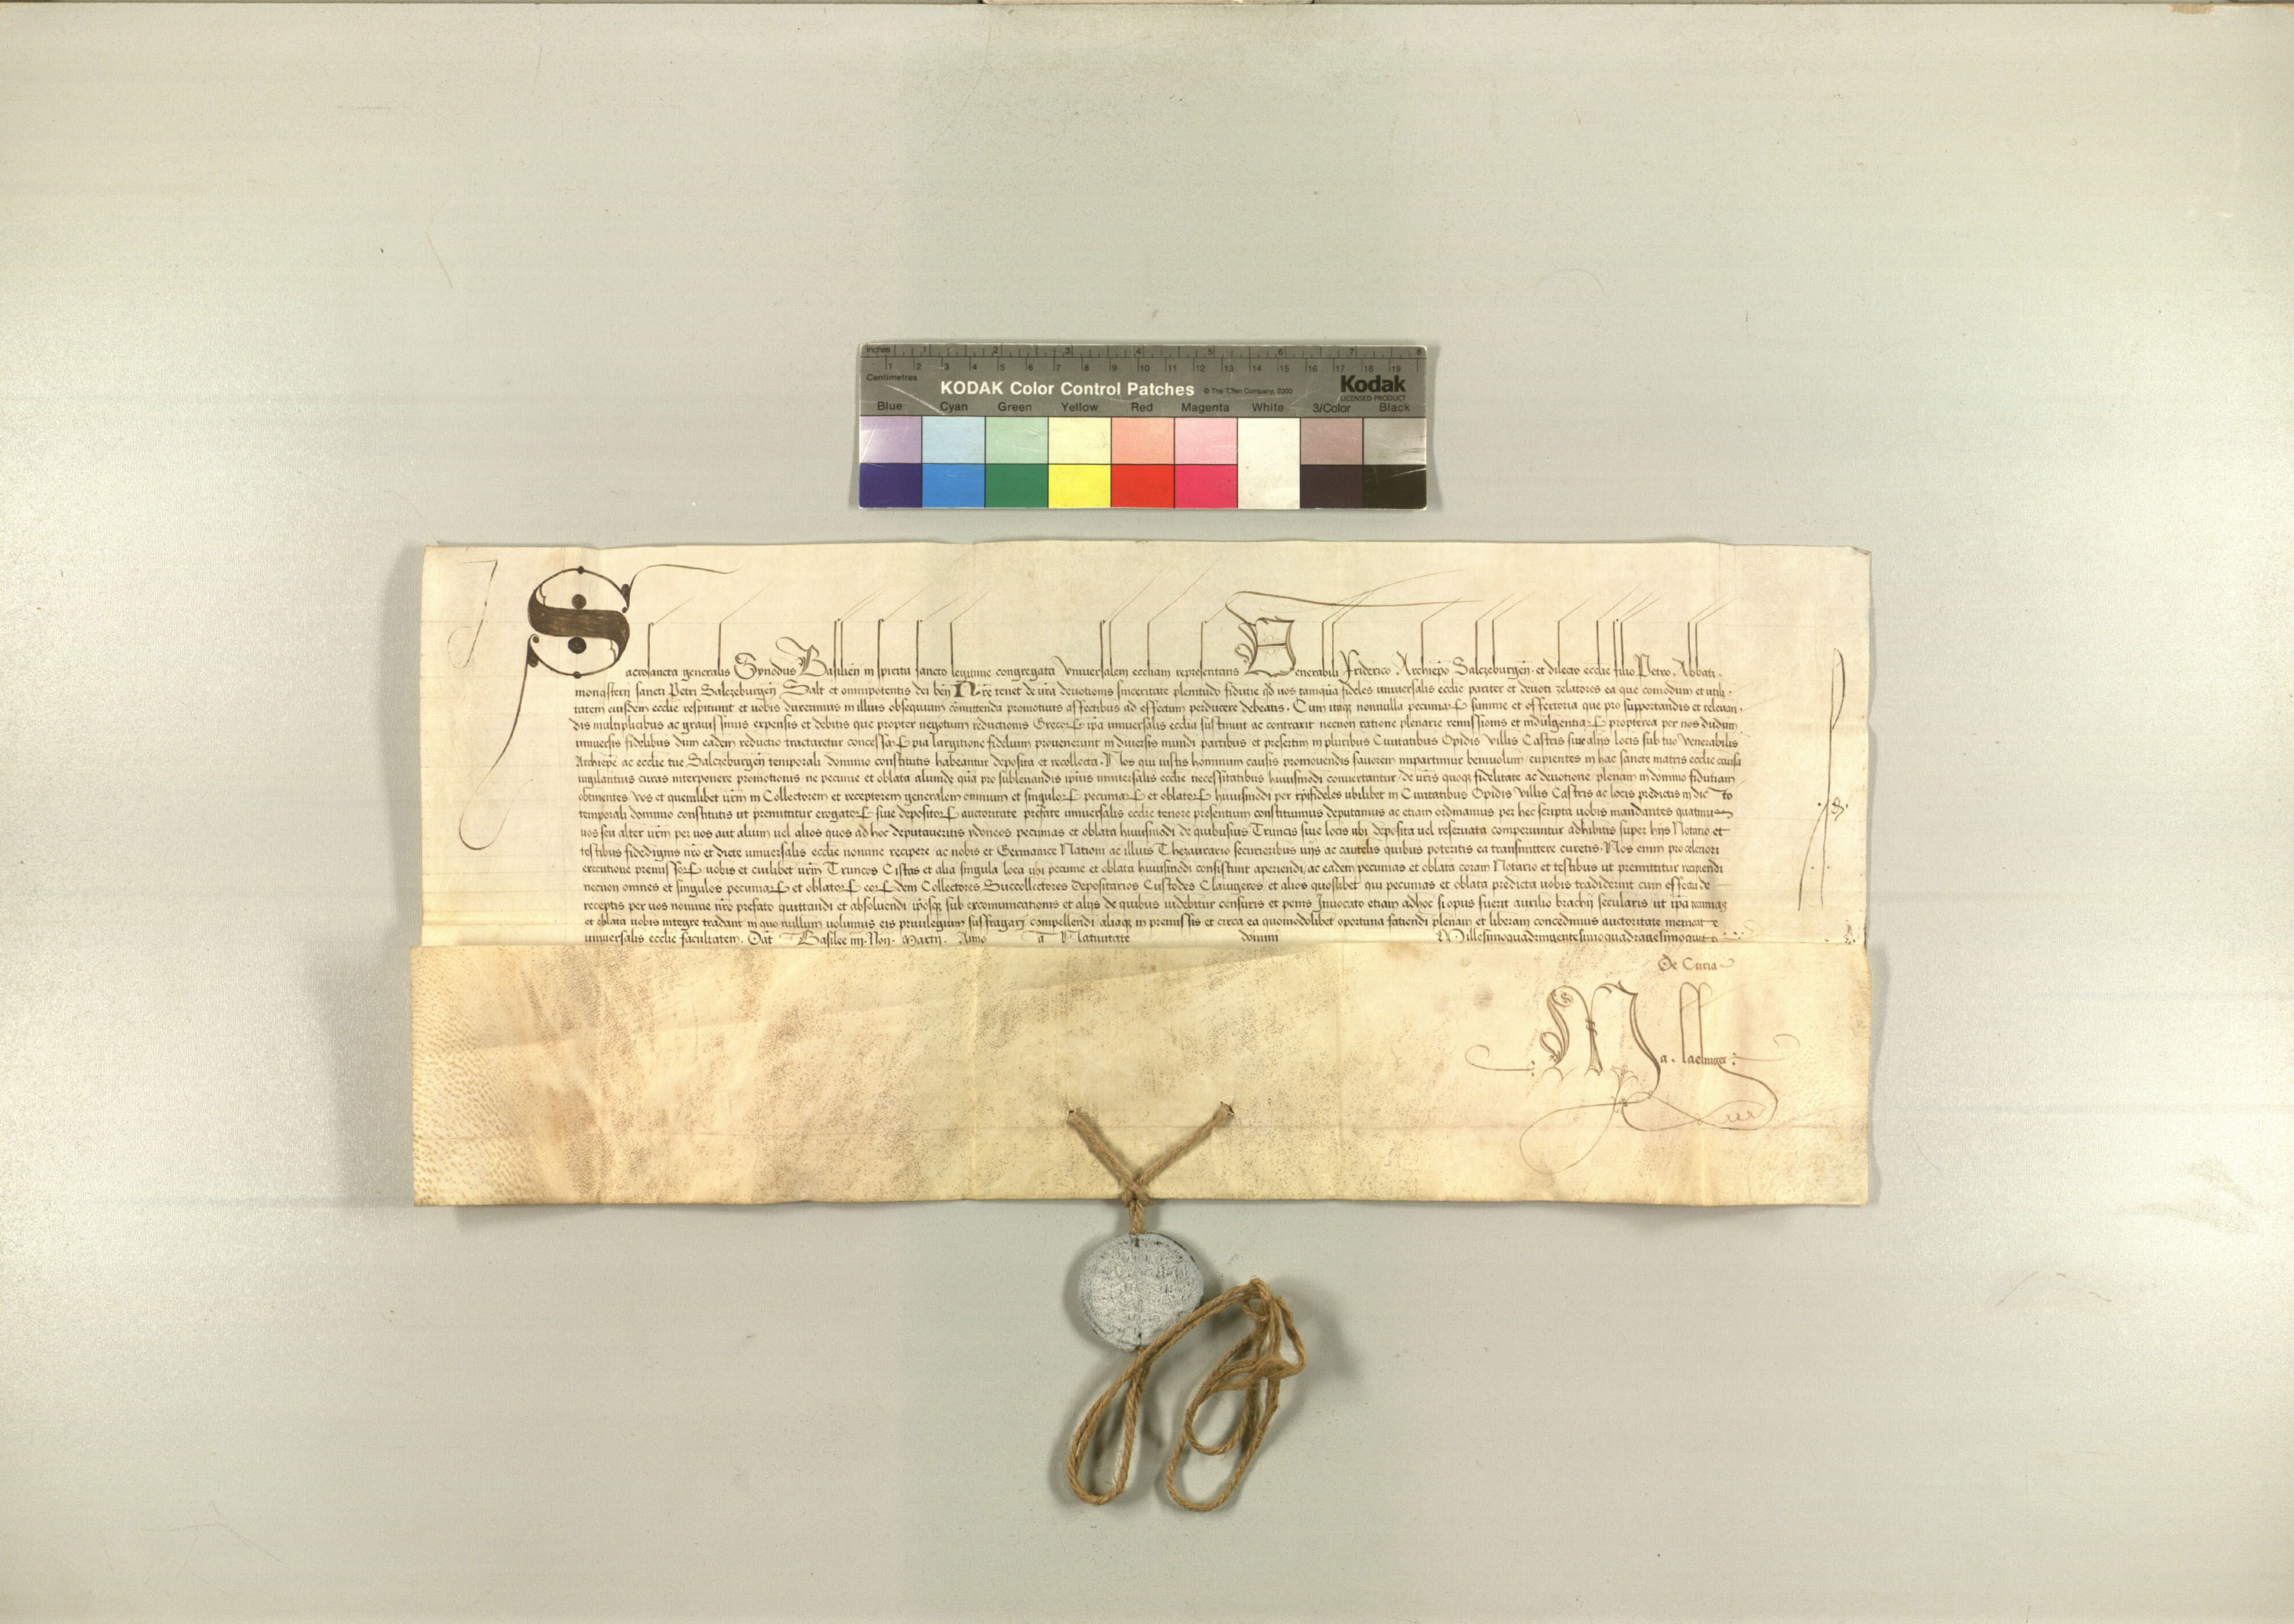 Inches 1 2 3 4 5 6 7 8
1 2 3 4 5 6 7 8 9 10 11 12 13 14 15 16 17 18 19
Centimetres
KODAK Color Control Patches © The Tiffen Company, 2000 Kodak
LICENSED PRODUCT
Blue Cyan Green Yellow Red Magenta White 3/Color Black
Sacrosancta generalis Synodus Basilien̄ in spiritu sancto legitime congregata vniuersalem eccliam representans Venerabili Friderico Archiepō Salczeburgen̄ · et dilecto ecclie filio Petro Abbati ·
monasterij sancti Petri Salczeburgen̄ Salt̄ et omnipotentis dei ben̄ Nr̄e tenet de ūra deuotionis sinceritate plenitudo fidutie qd̄ uos tamquā fideles uniuersalis ecclie pariter et deuoti zelatores ea que comodum et utili ·
tatem eiusdem ecclie respitiunt et uobis duxerimus in illius obsequium cōmittenda promotiuis affectibus ad effectum perducere debeatis · Cum itaqꝫ nonnulla pecuniaꝝ summe et offertoria que pro supportandis et releuan ·
dis multiplicibus ac grauissimis expensis et debitis que propter negotium reductionis Grecoꝝ ip̄a uniuersalis ecclia sustinuit ac contraxit necnon ratione plenarie remissionis et indulgentiaꝝ propterea per nos dudum
uniuersis fidelibus dum eadem reductio tractaretur concessaꝝ pia largitione fidelium prouenerunt in diuersis mundi partibus et presertim in pluribus Ciuitatibus Opidis Villis Castris siue alijs locis sub tuo Venerabilis
Archiepē ac ecclie tue Salczeburgen̄ temporali dominio constitutis habeantur deposita et recollecta · Nos qui iustis hominum causis promouendis fauorem impartimur beniuolum cupientes in hac sancte matris ecclie causa
uigilantius curas interponere promotionis ne pecunie et oblata aliunde quā pro subleuandis ipius uniuersalis ecclie necessitatibus huiusmodi conuertantur / de ūris quoqꝫ fidelitate ac deuotione plenam in domino fidutiam
obtinentes Vos et quemlibet ūrm in Collectorem et receptorem generalem omnium et singuloꝝ pecuniaꝝ et oblatoꝝ huiusmodi per xp̄ifideles ubilibet in Ciuitatibus Opidis Villis Castris ac locis predictis in dicto
temporali dominio constitutis ut premittitur erogatoꝝ siue depositoꝝ auctoritate prefate uniuersalis ecclie tenore presentium constituimus deputamus ac etiam ordinamus per hec scripta uobis mandantes quatinus
uos seu alter ūrm per uos aut alium uel alios quos ad hoc deputaueritis ydoneos pecunias et oblata huiusmodi de quibusuis Truncis siue locis ubi deposita uel reseruata comperiuntur adhibitis super hijs Notario et
testibus fidedignis nr̄o et dicte uniuersalis ecclie nomine recipere ac nobis et Germanice Nationi ac illius Thezaurario securioribus uijs ac cautelis quibus poteritis ea transmittere curetis · Nos enim pro celeriori
executione premissoꝝ uobis et cuilibet ūrm Truncos Cistas et alia singula loca ubi pecunie et oblata huiusmodi consistunt aperiendi / ac eadem pecunias et oblata coram Notario et testibus ut premittitur recipiendi
necnon omnes et singulos pecuniaꝝ et oblatoꝝ eoꝝdem Collectores Succollectores Depositarios Custodes Clauigeros et alios quoslibet qui pecunias et oblata predicta uobis tradiderint cum effectu de
receptis per uos nomine nr̄o prefato quittandi et absoluendi ip̄osqꝫ sub excomunicationis et alijs de quibus uidebitur censuris et penis Inuocato etiam adhoc si opus fuerit auxilio brachij secularis ut ip̄a pecunias
et oblata uobis integre tradant in quo nullum uolumus eis priuilegium suffragari compellendi aliaqꝫ in premissis et circa ea quomodolibet oportuna fatiendi plenam et liberam concedimus auctoritate
uniuersalis ecclie facultatem. Dat̄ Basilee iiij · Non · Martij · Anno a Natiuitate domini Millesimoquadringentesimoquadragesimoquīto
De Curia